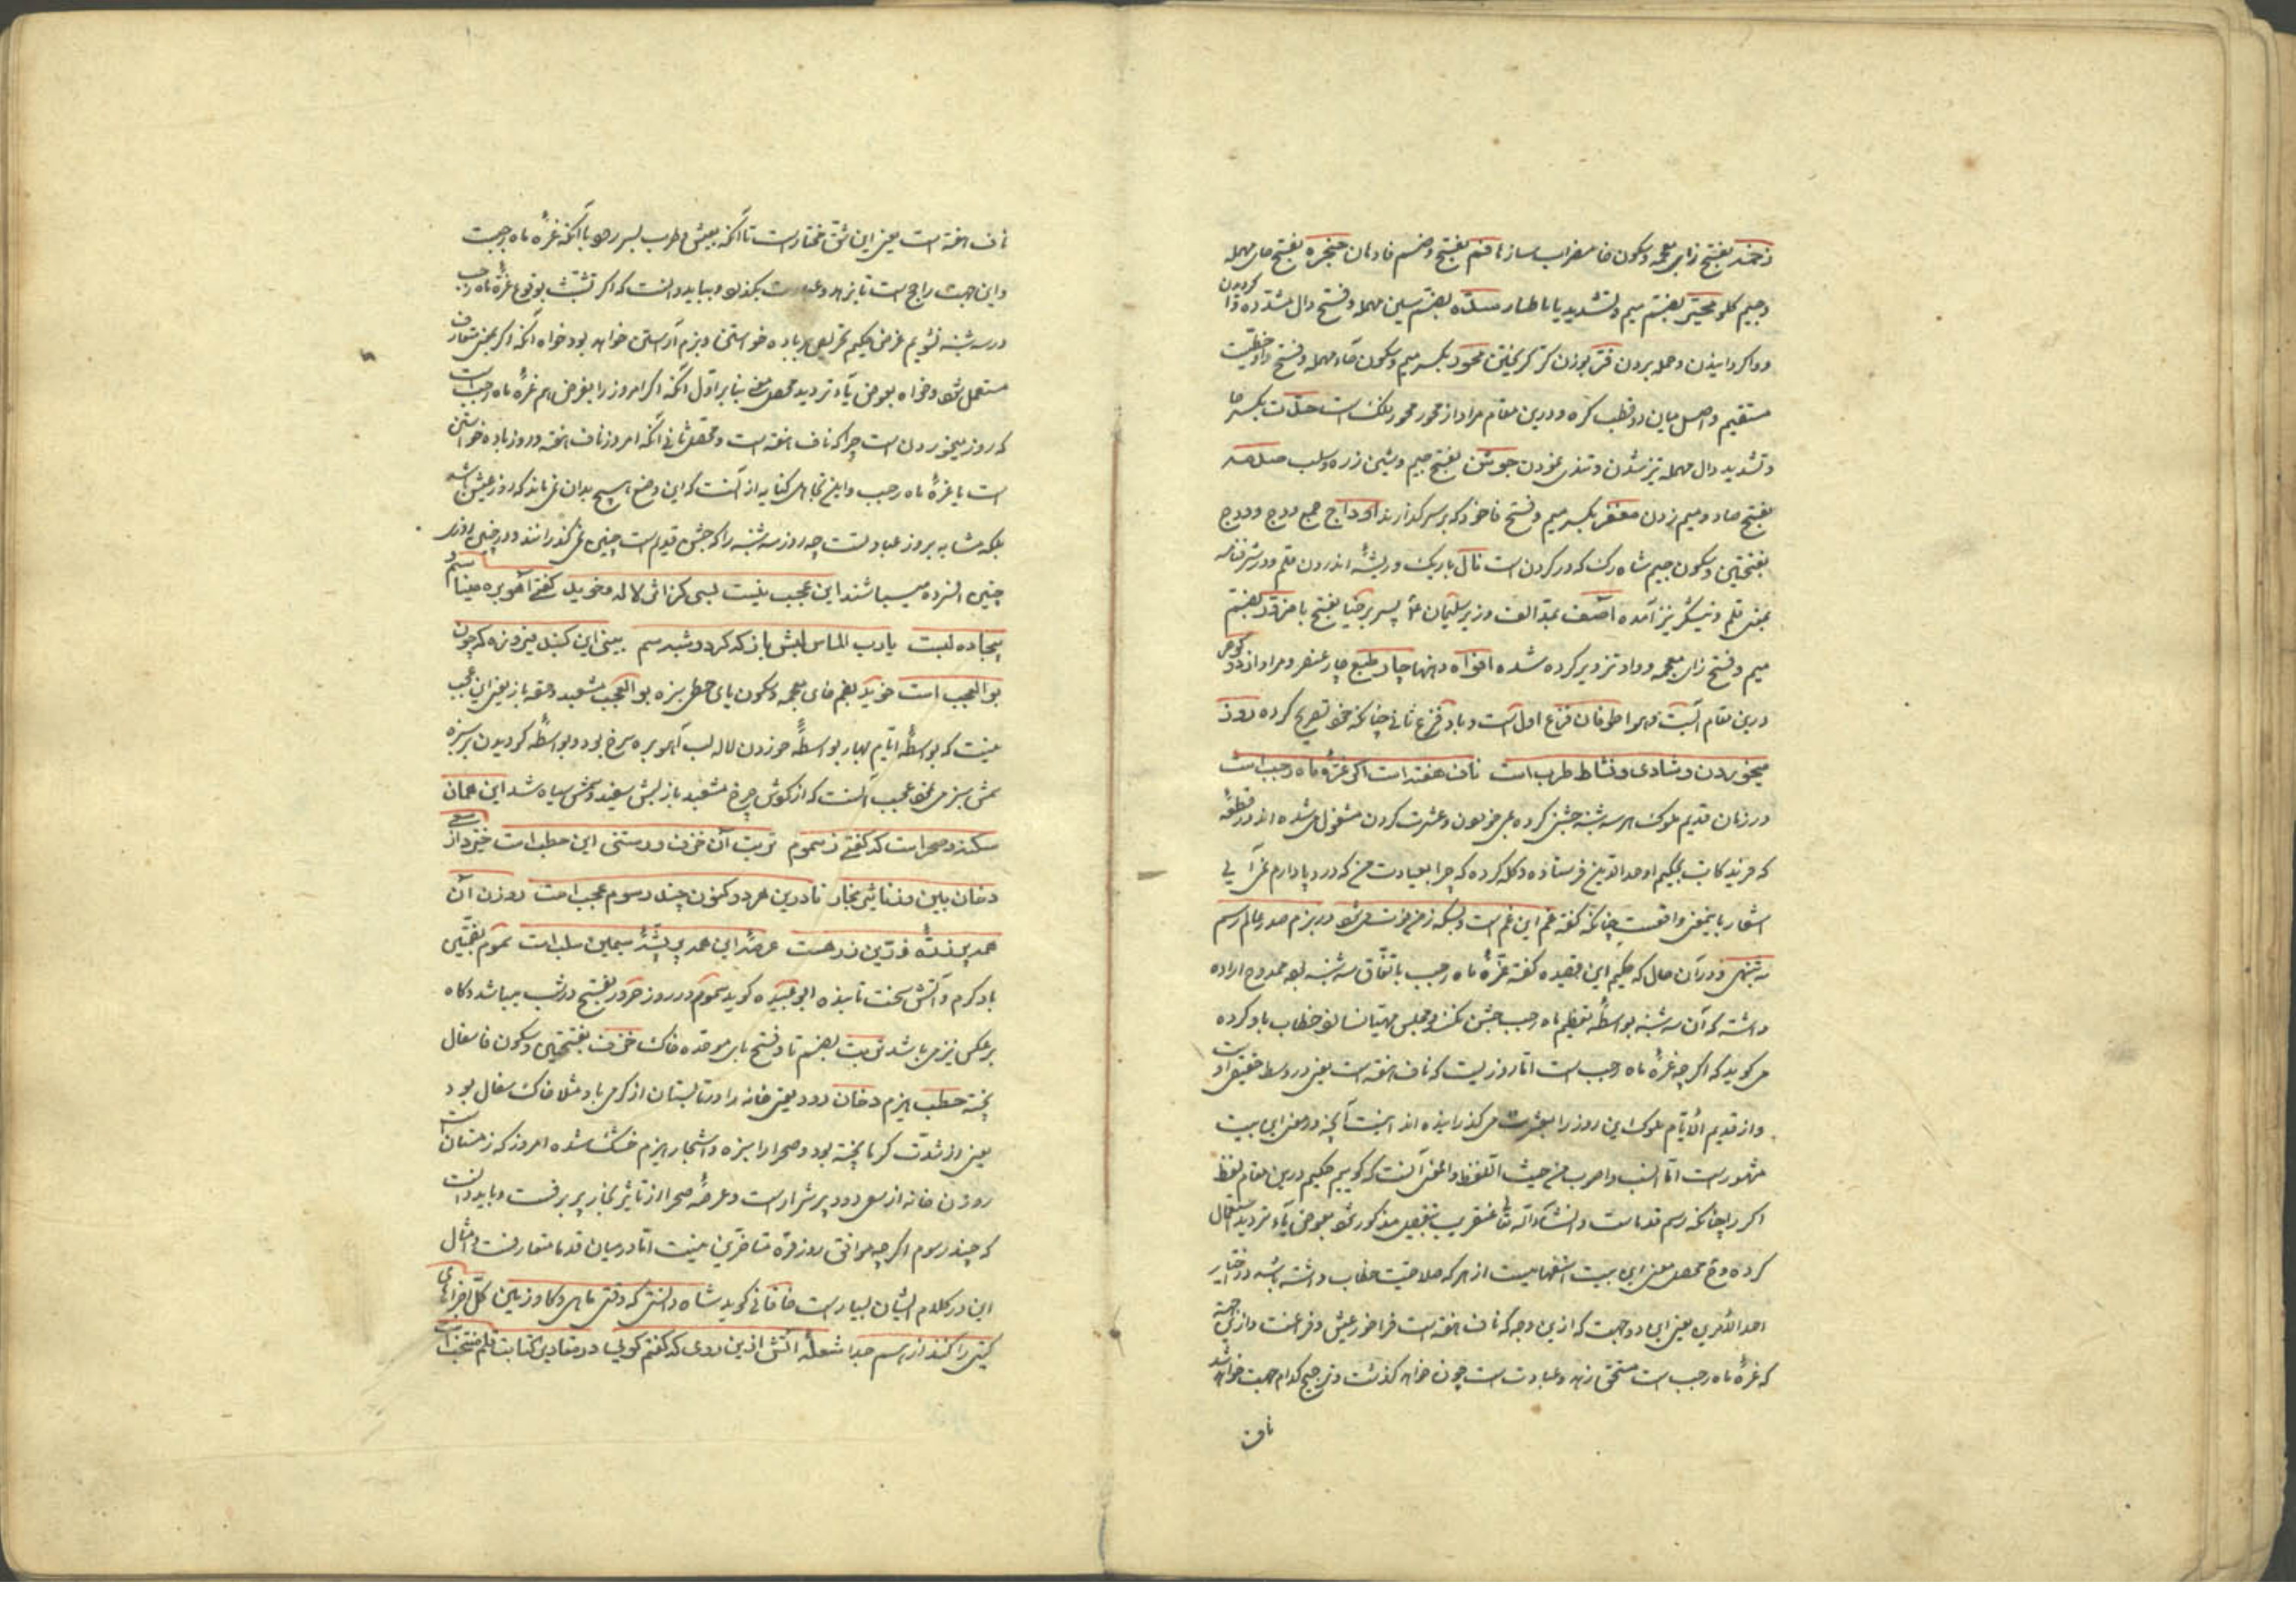 زخمه بفتح زای معجمه و سکون خا مضراب ساز نا فم بفتح و ضم فا دهان حنجره بفتح حای مهمله
و جیم کلو محیّز بضم میم و تشدید یا با طیار سدّه بضم سین مهمله و فتح دال مشدده وا کردیدن
و وا کردانیدن و حمله بردن فرّ بوزن کرّ کریختن محور بکسر میم و سکون حاء مهمله و فتح واو خطیست
مستقیم واصل میان دو قطب کره و درین مقام مراد از محور محور فلک است حدّت بکسر حا
و تشدید دال مهمله تیز شدن و تندی نمودن جوشن بفتح جیم و شین زره و سلب صدمه
بفتح صاد و میم زدن مغفر بکسر میم و فتح فا خود که بر سر گذارند اوداج جمع ودج و ودج
بفتحتین و سکون جیم شاه رک که در کردن است نال باریک و ریشهٔ اندرون قلم و در شرفنامه
بمعنی قلم و نیشکر نیز آمده آصف بمد الف وزیر سلیمان پسر برخیا بفتح با مزوّر بضم
میم و فتح زای معجمه و واو تزویر کرده شده افواه دهنها چار طبع چار عنصر و مراد از
درین مقام آبست و هوا طوفان فزع اول است و باد فزع ثانی چنانکه خود تصریح کرده روز
میخوردن و شادی و نشاط طرب است ناف هفته است اگر غرهٔ ماه رجب است
در زمان قدیم ملوک هر سه شنبه جشن کرده می خوردن و عشرت کردن مشغول می شده اند و در قطعهٔ
که فرید کاتب بحکیم اوحد الدین فرستاده و کله کرده که چرا بعیادت من که درد پا دارم نمی آیی
اشعار باینمعنی واقعست چنانکه گفته غم این غم است و بس که ز من فوت می شود در بزم صدر عالم رسم
سه شنبهی و در آن حال که حکیم این قصیده گفته غرّهٔ ماه رجب باتفاق سه شنبه بود ممدوح اراده
داشته که آن سه شنبه بواسطهٔ تعظیم ماه رجب جشن نکند و مجلس مهیا نشاند خطاب باو کرده
می کوید که اگر چه غرهٔ ماه رجب است اما روزیست که ناف هفته است یعنی در وسط حقیقی اوست
و از قدیم الایّام ملوک این روز را بعشرت می گذرانیده اند اینست آنچه در معنی این بیت
مشهور است اما انسب و اصوب من حیث اللفظ و المعنی آنست که گوییم حکیم درین مقام لفظ
اگر را چنانکه رسم قدماست و انشاء الله تعالی عنقریب بتفصیل مذکور شود بعوض یاء تردید استعمال
کرده و ح محصل معنی این بیت استفهامیست از هر که صلاحیت خطاب داشته باشد در اختیار
احد الامرین یعنی این دو جهت که ازین وجه که ناف هفته است فراخور عیش و فراغت و ازین جهة
که غرهٔ ماه رجب است مستحق زهد و عبادت است چون خواهد گذشت و ترجیح کدام جهت خواهد شد
ناف
ناف هفته است یعنی این شق مختار است تا آنکه بعیش و طرب بسر رود یا آنکه غرهٔ ماه رجبست
و این جهت راجح است تا بزهد و عبادت بگذرد و بباید دانست که اگر تشبث بوقوع غرهٔ ماه رجب
در سه شنبه نشویم غرض حکیم تحریص بر باده خواستن و بزم آراستن خواهد بود خواه آنکه اگر بمعنی متعارف
مستعمل شود و خواه بعوض یاء تردید محصل معنی بنابر اول آنکه اگر امروز را بفرض هم غرهٔ ماه رجب است
که روز میخوردن است چرا که ناف هفته است و محصل ثانی آنکه امروز ناف هفته و روز باده خواستن
است یا غرهٔ ماه رجب و این تجاهل کنایه از آنست که این وضع هیچ بدان نمی ماند که روز عیش باشد
بلکه مشابه بروز عبادتست چه روز سه شنبه را که جشن قدیم است چنین نمی گذرانند و در چنین روزی
چنین افسرده نمیباشند این عجب نیست بسی کز اثر لاله و خوید گفتی آهوبره مینا سم
و بیجاده لبست یا رب الماس لبش باز که کرد و شبه سم ببینی این گنبد فیروزه که چون
بوالعجب است خوید بفتح خای معجمه و سکون یای حطی سبزه بوالعجب مشعبد و حقه باز یعنی این عجب
نیست که بواسطهٔ ایّام بهار بواسطهٔ خوردن لاله لب آهوبره سرخ بود و بواسطهٔ گردیدن بر سبزه
سمش سبز می نمود عجب آنست که از گوش چرخ مشعبد باز لبش سفید و سمش سیاه شد این همان
سکنه و صحراست که گفتی ز سموم تربت آن خزف و رستنی این حطب است خیز و از سعی
دخان بین و ز تأثیر بخار تا درین هر دو کنون چند رسوم عجب است روزن آن
همه پر زرّین زرهست عرصهٔ این همه پر پشهٔ سیمین سلب است سموم بفتحتین
باد گرم و آتش سخت تابنده ابو عبیده گوید سموم در روز حرور بفتح در شب میباشد و گاه
بر عکس نیز می باشد تربت بضم تا و فتح بای موحده خاک خزف بفتحتین و سکون فا سفال
پخته حطب هیزم دخان دود یعنی خانه را در تابستان از گرمی باد مثلا خاک سفال بود
یعنی از شدت گرما پخته بود و صحرا را سبزه و اشجار هیزم خشک شده امروز که زمستان است
روزن خانه از سعی دود پر شرارست و عرصهٔ صحرا از تأثیر بخار پر برفست و بباید دانست
که چند رسوم اگر چه موافق روزمرّهٔ متأخرین نیست اما در میان قدما متعارفست و امثال
این در کلام ایشان بسیار است خاقانی گوید شاه دانش که دقتی ماهی و گاو زمین کل اجزای
گیتی را کند از هم جدا شعله آتش ازین روی که گفتم گویی در مقادین کتابت قلم منتخب است